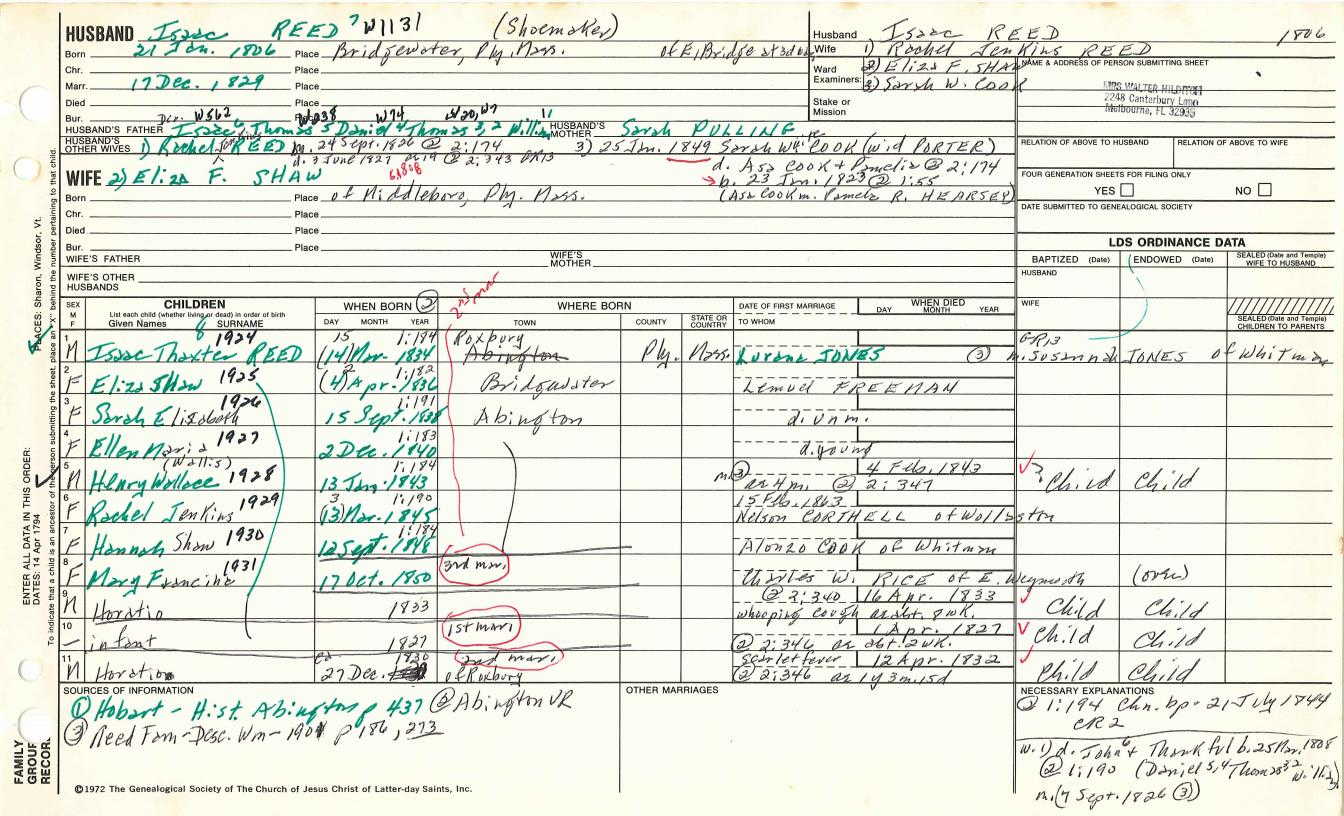 HUSBAND Isaac REED 7 W1131 (Shoemaker)
Born 21 Jan. 1806 Place Bridgewater, Ply. Mass. of E. Bridge
Chr. Place
Marr. 17 Dec. 1829 Place
Died Place
Bur. Place
W562 W238 W74 W20, W7 11
HUSBAND'S FATHER Isaac 6 Thomas 5 Daniel 4 Thomas 3, 2 William HUSBAND'S MOTHER Sarah PULLING
HUSBAND'S OTHER WIVES 1) Rachel Jenkins REED m. 24 Sept. 1826 @ 2:174 3) 25 Jan. 1849 Sarah W. COOK (wid PORTER)
d. 3 June 1827 @ 2:343 GR13 d. Asa COOK + Pamelia @ 2:174
WIFE 2) Eliza F. SHAW b. 23 Jan. 1823 @ 1:55
Born Place of Middleboro, Ply. Mass. (Asa Cook m. Pamela R. HEARSEY)
Chr. Place
Died Place
Bur. Place
WIFE'S FATHER WIFE'S MOTHER
WIFE'S OTHER HUSBANDS
Husband Isaac REED 1806
Wife 1) Rachel Jenkins REED
Ward Examiners: 2) Eliza F. SHAW
3) Sarah W. COOK
Stake or Mission
NAME & ADDRESS OF PERSON SUBMITTING SHEET
MRS WALTER
2248 Canterbury Lane
Melbourne, FL 32935
RELATION OF ABOVE TO HUSBAND RELATION OF ABOVE TO WIFE
FOUR GENERATION SHEETS FOR FILING ONLY
YES NO
DATE SUBMITTED TO GENEALOGICAL SOCIETY
LDS ORDINANCE DATA
BAPTIZED (Date) ENDOWED (Date) SEALED (Date and Temple) WIFE TO HUSBAND
HUSBAND
WIFE
SEALED (Date and Temple) CHILDREN TO PARENTS
SEX M F
CHILDREN
List each child (whether living or dead) in order of birth
Given Names SURNAME
WHEN BORN 2 2nd mar
DAY MONTH YEAR
WHERE BORN
TOWN COUNTY STATE OR COUNTRY
DATE OF FIRST MARRIAGE
TO WHOM
WHEN DIED
DAY MONTH YEAR
8 1924 15 1:184 Roxbury GR13
1 M Isaac Thaxter REED (14) Mar. 1834 Abington Ply. Mass. Lurana JONES (3) m. Susannah JONES of Whitman
1925 2 1:182
2 F Eliza Shaw (4) Apr. 1836 Bridgewater Lemuel FREEMAN
1926 1:191
3 F Sarah Elizabeth 15 Sept. 1838 Abington d. unm.
1927 1:183
4 F Ellen Maria 2 Dec. 1840 d. young
(Wallis) 1:184 4 Feb. 1843
5 M Henry Wallace 1928 13 Jan. 1843 m. (3) ae 4m. (2) 2:347 Child Child
1929 3 1:190 15 Feb. 1863
6 F Rachel Jenkins (13) Mar. 1845 Nelson CORTHELL of Wollaston
1:184
7 F Hannah Shaw 1930 12 Sept. 1848 Alonzo COOK of Whitman
1931 3rd mar.
8 F Mary Francina 17 Oct. 1850 Charles W. RICE of E. Weymouth (over)
@ 2:340 16 Apr. 1833
9 M Horatio 1833 whooping cough ae abt. 8 wk. Child Child
1st mar. 1 Apr. 1827
10 - infant 1827 @ 2:346 ae abt. 2 wk. Child Child
ca 1830 2nd mar. Scarlet fever 12 Apr. 1832
11 M Horation 27 Dec. of Roxbury @ 2:346 ae 1y 3m. 15d Child Child
SOURCES OF INFORMATION
(1) Hobart - Hist. Abington p 437 (2) Abington VR
(3) Reed Fam - Desc. Wm - 1901 p 186, 273
OTHER MARRIAGES
NECESSARY EXPLANATIONS
(2) 1:194 Chn. bp - 21 July 1844
CR2
w. 1) d. John 6 + Thankful b. 25 Mar. 1808
(2) 1:190 (Daniel 5, 4 Thomas 3, 2 William)
m. (7 Sept. 1826 (3))
©1972 The Genealogical Society of The Church of Jesus Christ of Latter-day Saints, Inc.
FAMILY GROUP RECORD
ENTER ALL DATA IN THIS ORDER:
DATES: 14 Apr 1794
PLACES: Sharon, Windsor, Vt.
To indicate that a child is an ancestor of the person submitting the sheet, place an "X" behind the number pertaining to that child.